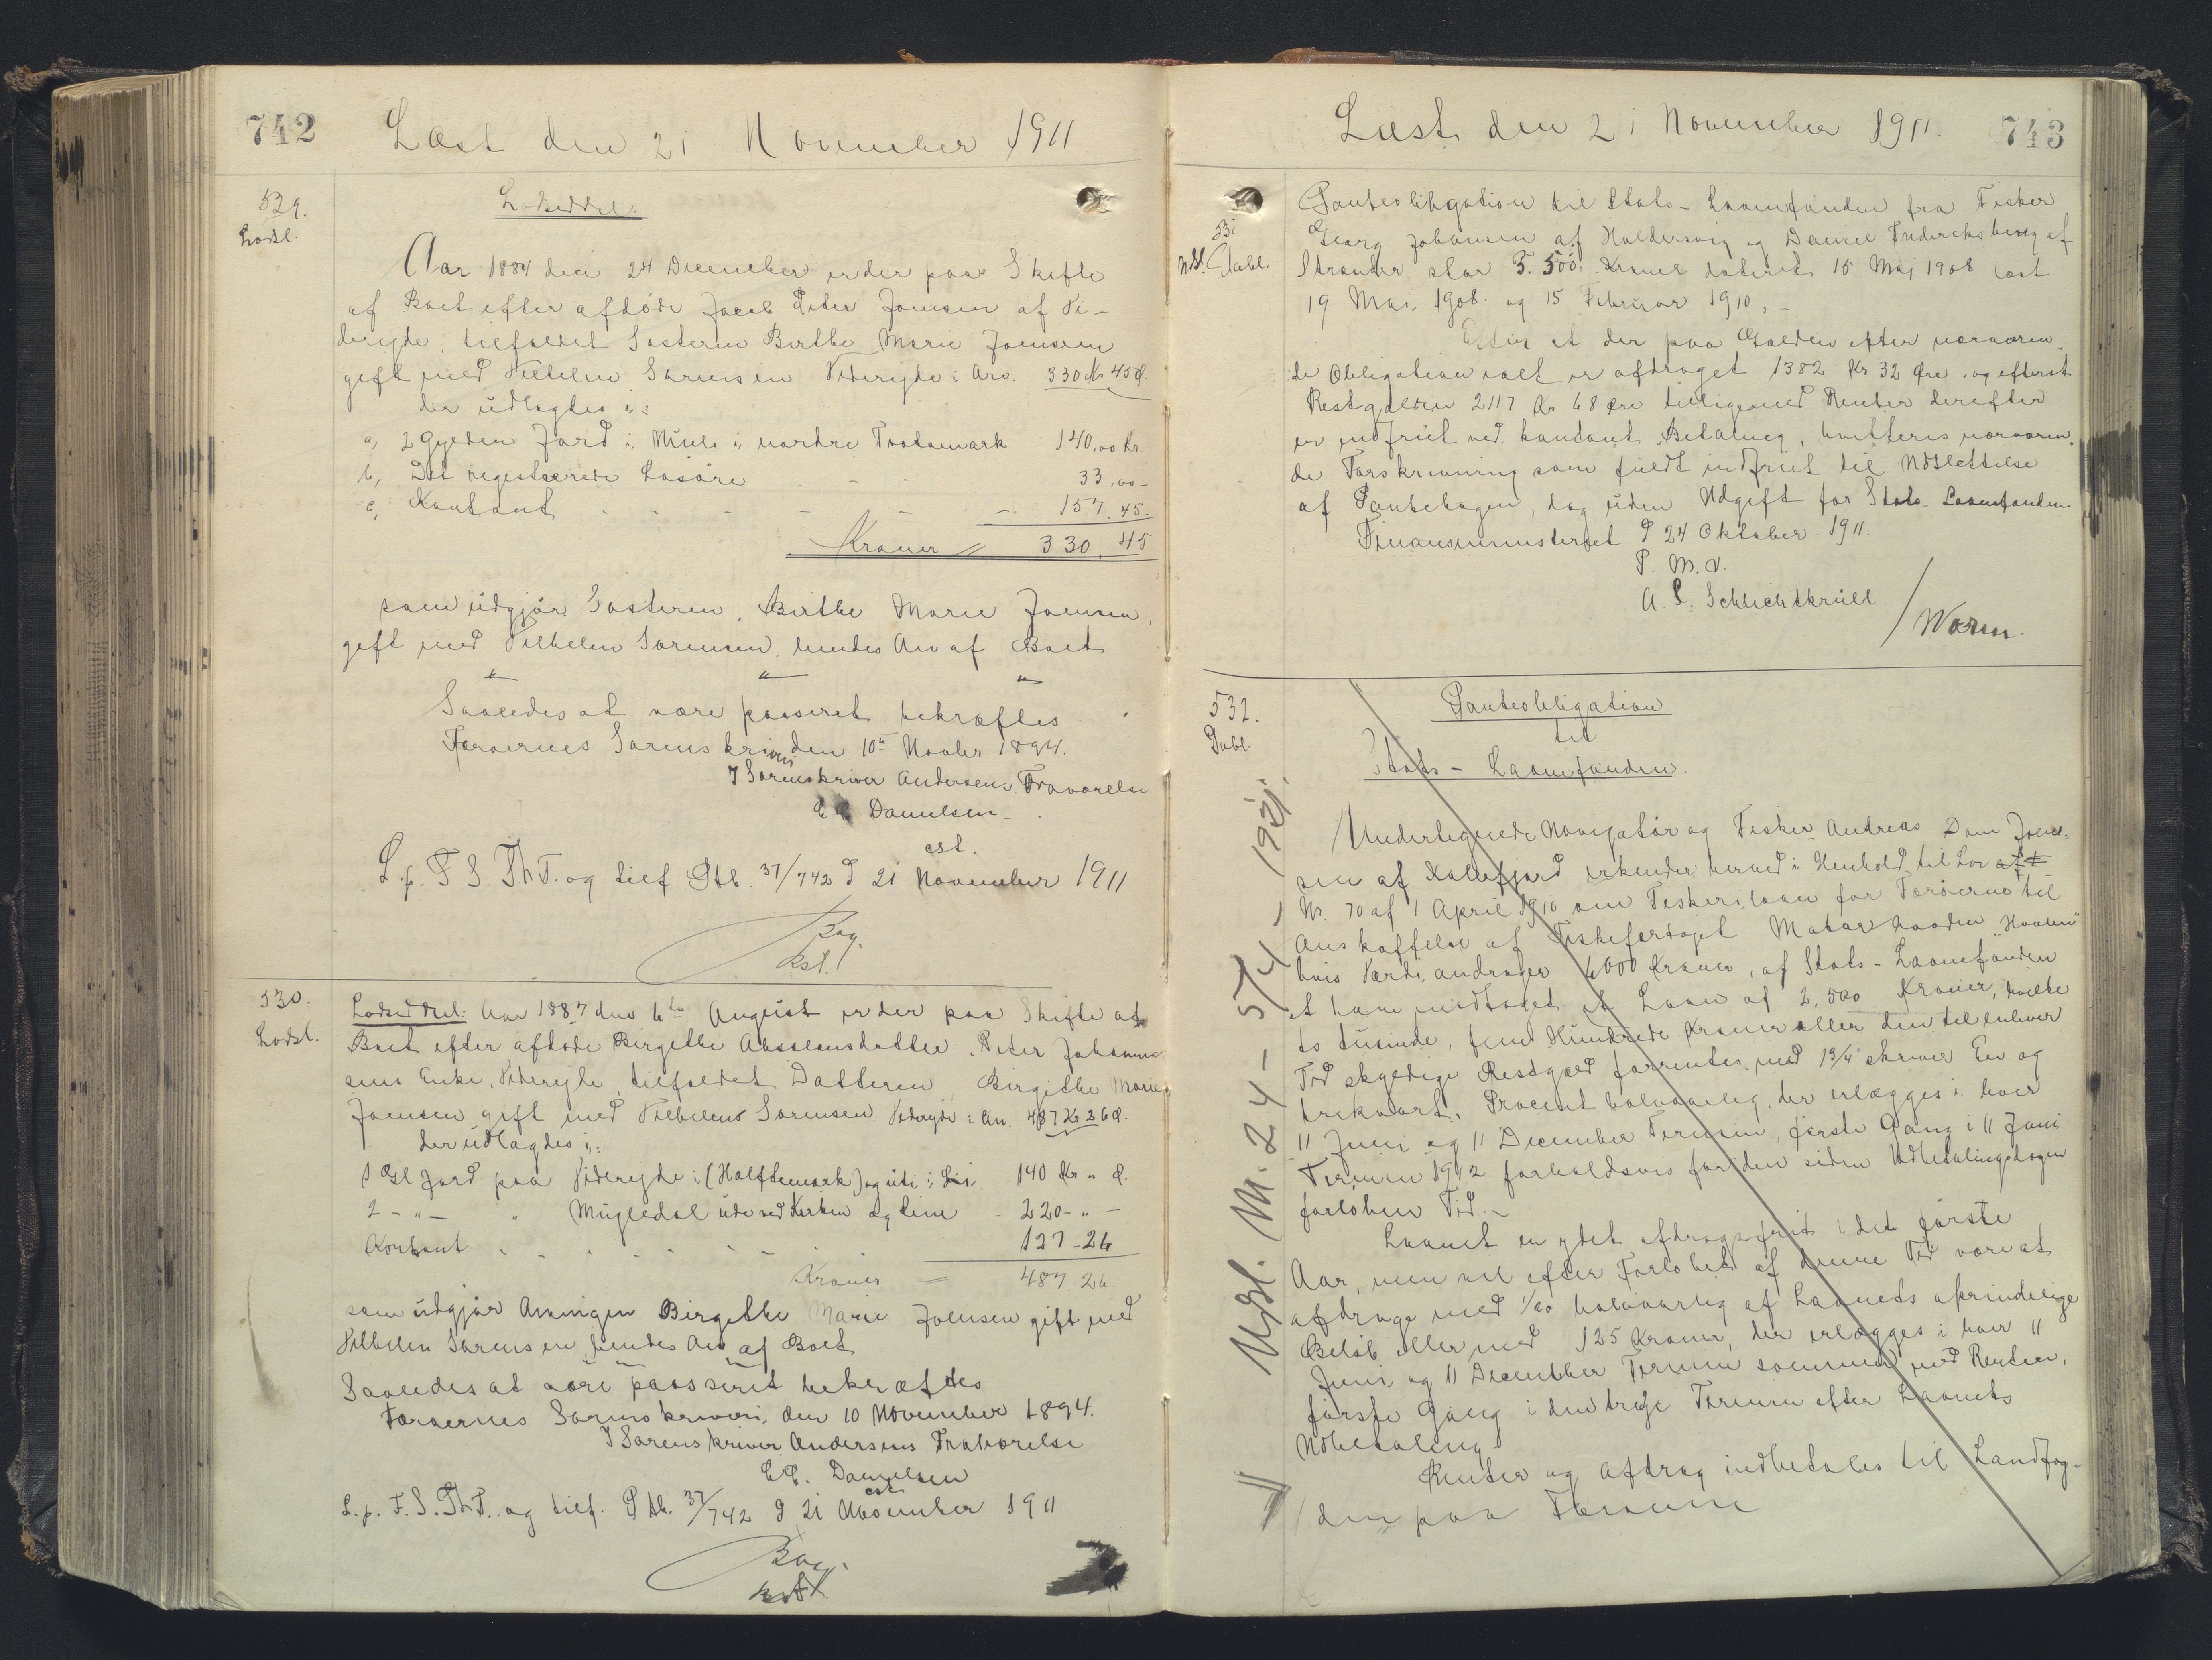 742
Læst den 21 November 1911
529.
Lodsl.
Lodseddel:
Aar 1884 den 24 December er der paa Skifte
af Boet efter afdøde Jacob Peter Joensen af Vi-
dereide, tilfaldet Søsteren Birthe Marie Joensen
gift med Vilhelm Sørensen Videreide i Arv. 330 Kr 45 Ø.
der udlagdes i:
a, 2 Gylden Jord i Muli i nordre Toatamark 140,00 Kr.
b, Det registrerede Løsøre - - 33,00 -
c, Kontant - - - - - 157.45.
Kroner = 330,45
som udgjør Søsteren, Birthe Marie Joensen,
gift med Vilhelm Sørensen, hendes Arv af Boet
" " "
Saaledes at være passeret bekræftes
Færøernes Sorenskriveri den 10de Novbr 1894.
I Sorenskriver Andersens Fraværelse
E C Danielsen
est.
L. p. F. S. Th T. og tilf Ptb. 37/742 d 21 November 1911
Bag.
kst.
530.
Lodsl.
Lodseddel: Aar 1887 den 6te August er der paa Skifte af
Boet efter afdøde Birgithe Absalonsdatter, Peter Johanne-
sens Enke, Videreide, tilfaldet Datteren Birgithe Marie
Joensen gift med Vilhelm Sørensen Videreide i Arv. 487 Kr 26 Ø.
der udlagdes i:
1 Gl Jord paa Videreide i (Halftemark) og uti i Lii 140 Kr " Ø.
2 - " - " Mugledal ude ved Kirken og Lim - 220 - " -
Kontant - - - - - - 127-26
Kroner = 487.26.
som udgjør Arvingen Birgithe Marie Joensen gift med
Vilhelm Sørensen, hendes Arv af Boet
" " "
Saaledes at være passeret bekræftes
Færøernes Sorenskriveri, den 10 November 1894.
I Sorenskriver Andersens Fraværelse
E C. Danielsen
est.
L. p. F. S. Th T. og tilf. Ptb. 37/742 d 21 November 1911
Bag.
kst
Læst den 21 November 1911.
743
531
Udsl. Pobl.
Panteobligation til Stats-Laanefonden fra Fisker
Georg Johansen af Haldersvig og Daniel Fredericksberg af
Strender, stor 3.500 Kroner dateret 15 Maj 1908 læst
19 Maj 1908 og 15 Februar 1910, -
Efter at der paa Gælden efter nærværen-
de Obligation ialt er afdraget 1382 Kr 32 Øre og efterat
Restgælden 2117 Kr 68 Øre tilligemed Renter derefter
er indfriet ved kontant Betaling, kvitteres nærværen-
de Forskrivning som fuldt indfriet til Udslettelse
af Pantebogen, dog uden Udgift for Stats-Laanefonden.
Finansministeriet d 24 Oktober 1911.
P. M. V.
A. P. Schlichtkrull
/ Worm.
532.
Pobl.
Panteobligation
til
Stats-Laanefonden.
Undertegnede Navigatør og Fisker Andreas Dam Joen-
sen af Kollefjord erkender herved i Henhold til Lov af 1
Nr. 70 af 1 April 1910 om Fiskerilaan for Færøerne til
Anskaffelse af Fiskefartøjet Motorbaaden "Hvalen"
hvis Værdi andrager 6000 Kroner, af Stats-Laanefonden
at have modtaget et Laan af 2,500 Kroner, hvilke
to tusinde, fem Hundrede Kroner eller den til enhver
Tid skyldige Restgæld forrentes med 1 3/4 skriver En og
trekvart, Procent halvaarlig, der erlægges i hver
11 Juni og 11 December Termin, første Gang i 11 Juni
Termin 1912 forholdsvis for den siden Udbetalingsdagen
forløbne Tid. -
Laanet er ydet afdragsfrit i det første
Aar, men vil efter Forløbet af denne Tid være at
afdrage med 1/20 halvaarlig af Laanets oprindelige
Beløb eller med 125 Kroner, der erlægges i hver 11
Juni og 11 December Termin sammen med Renten,
første Gang i den tredje Termin efter Laanets
Udbetaling
Renter og Afdrag indbetales til Landfog-
den paa Færøerne
Udsl. M. 24 - 5/4 - 1921.